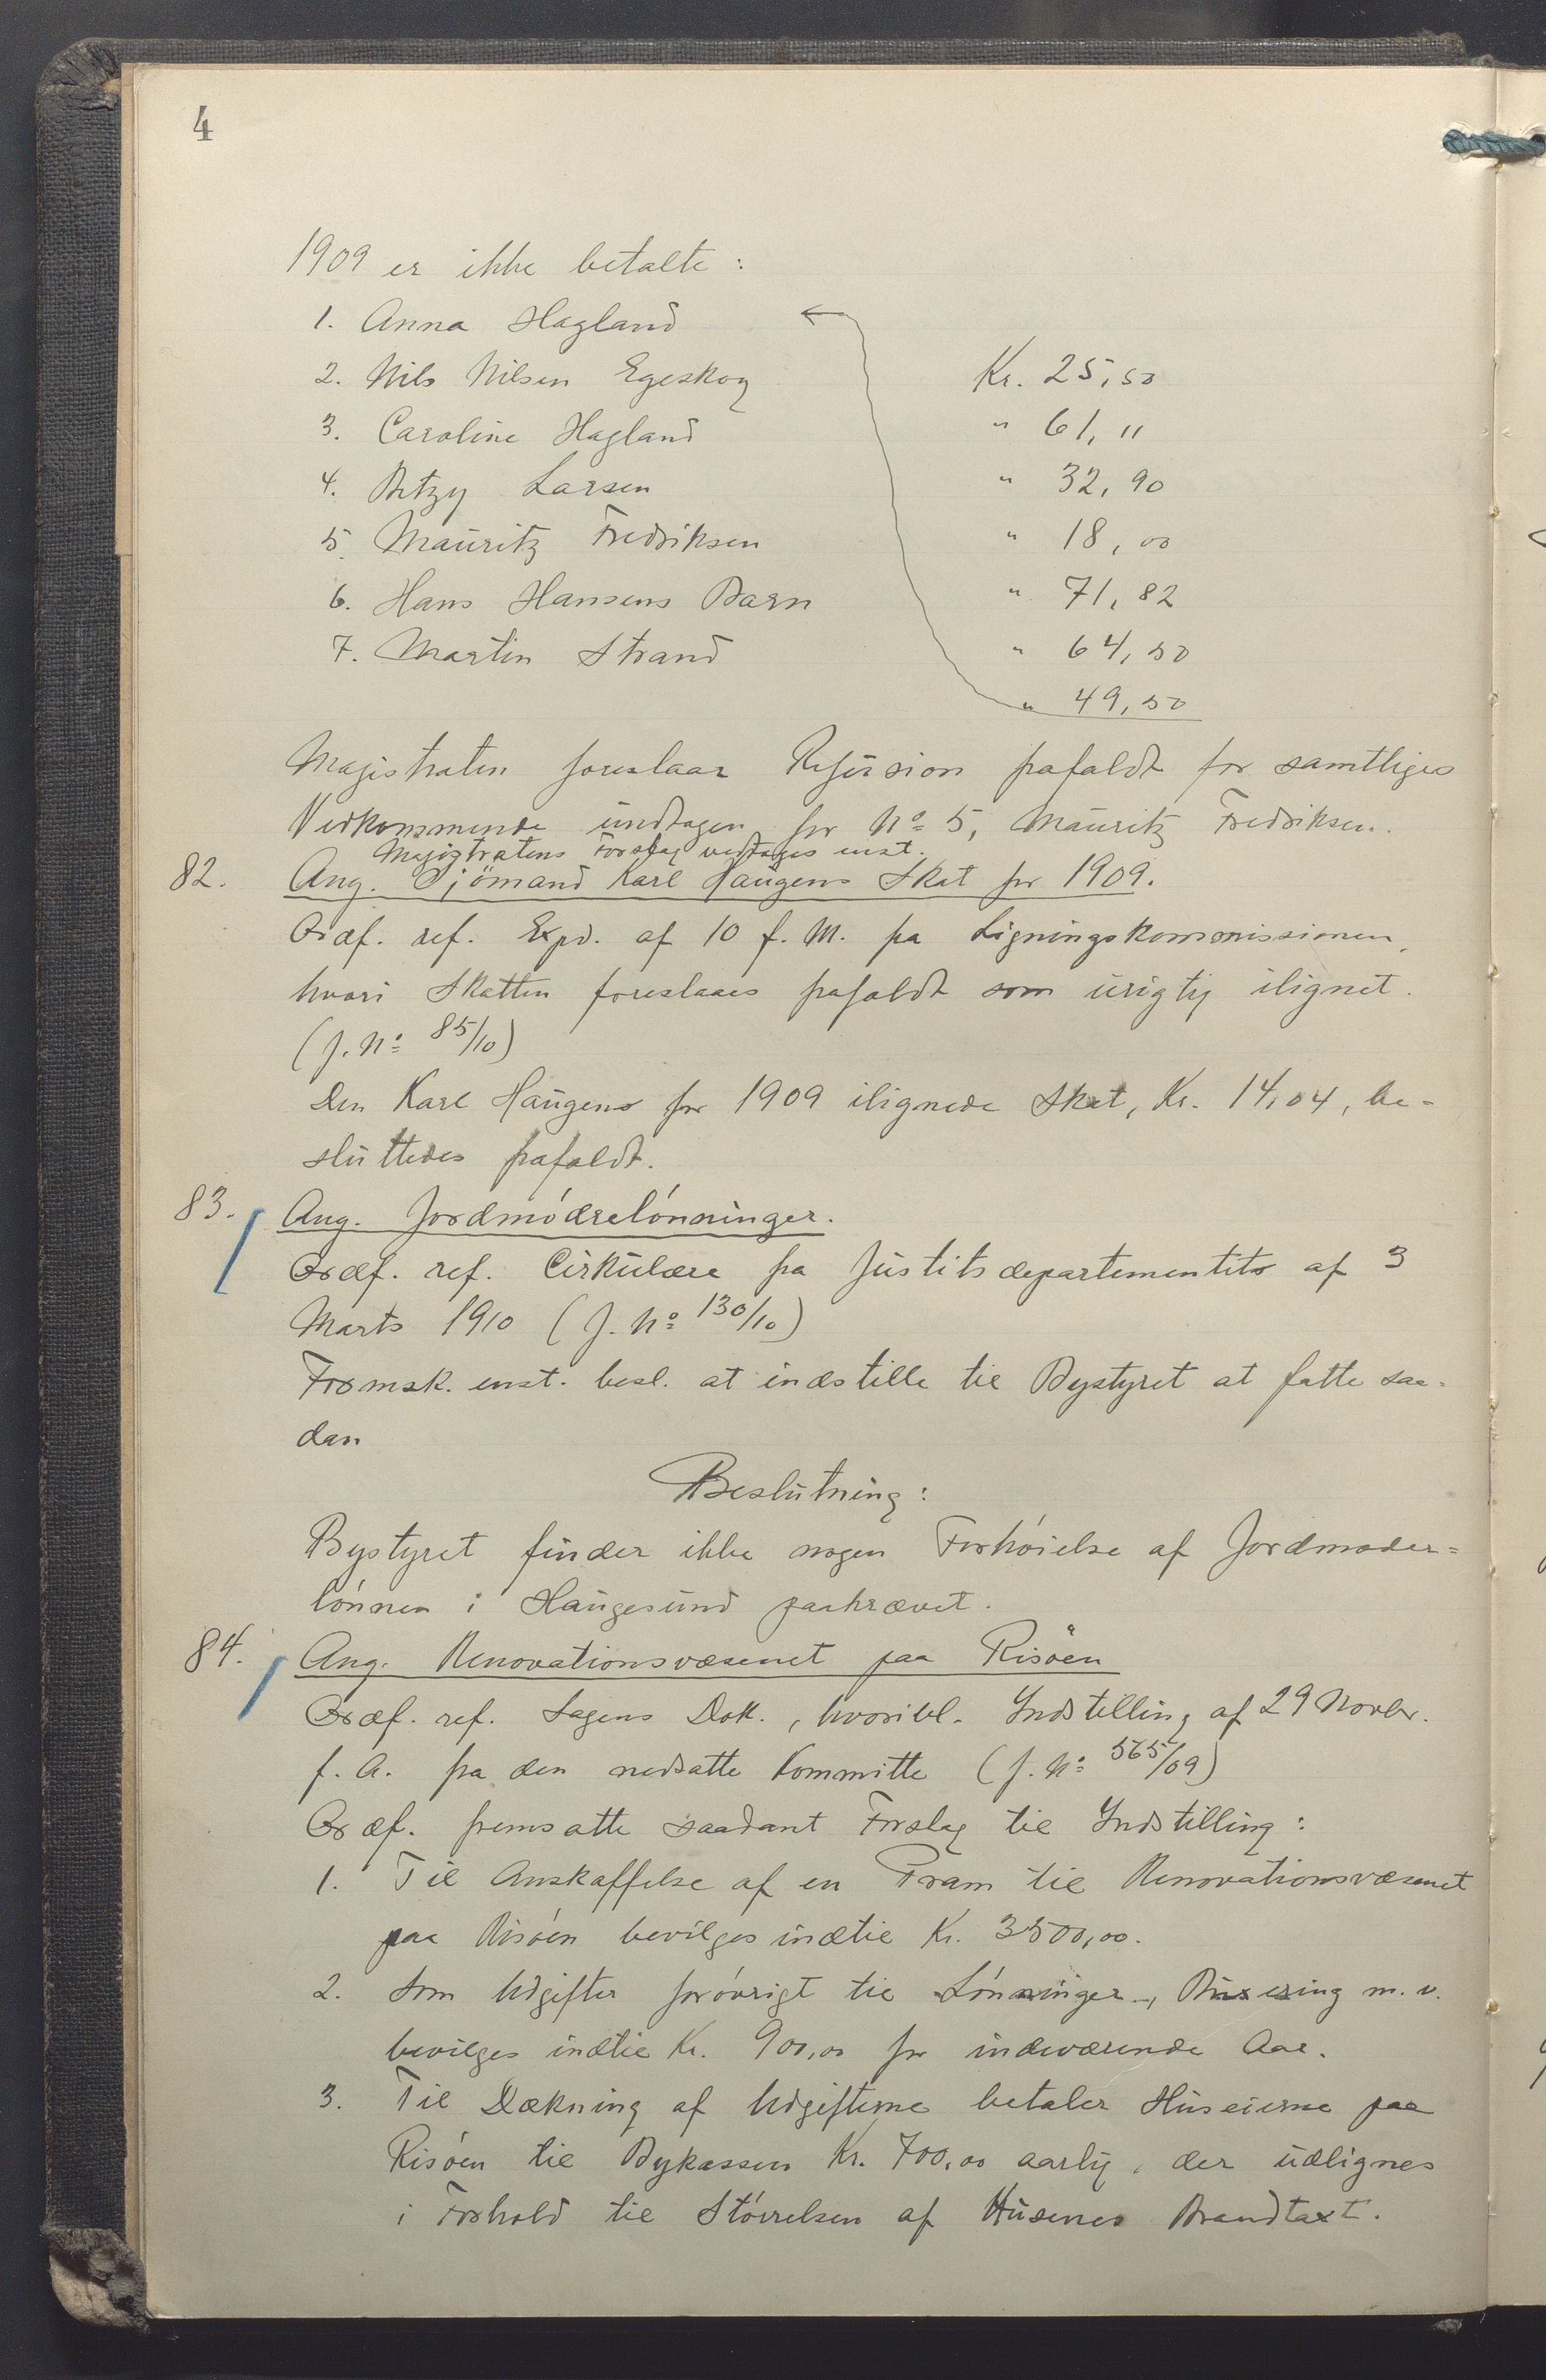 4
1909 er ikke betalte:
1. Anna Hagland
2. Nils Nilsen Egeskog Kr. 25,50
3. Caroline Hagland " 61,11
4. Betzy Larsen " 32,90
5. Mauritz Fredriksen " 18,00
6. Hans Hansens Barn " 71,82
7. Martin Strand " 64,50
" 49,50
Magistraten foreslaar Refusion frafaldt for samtliges
Vedkommende undtagen for No 5, Mauritz Fredriksen.
Magistratens Forslag vedtages enst.
82. Ang. Sjömand Karl Haugens Skat for 1909.
Ordf. ref. Expd. af 10 f. M. fra Ligningskommissionen,
hvori Skatten foreslaaes frafaldt som urigtig ilignet.
(J. No 85/10)
Den Karl Haugens for 1909 ilignede Skat, Kr. 14,04, be-
sluttedes frafaldt.
83. Ang. Jordmódrelónninger.
Ordf. ref. Cirkulære fra Justitsdepartementets af 3
Marts 1910 (J. No 130/10)
Fromsk. enst. besl. at indstille til Bystyret at fatte saa-
dan
Beslutning:
Bystyret finder ikke nogen Forhóielse af Jordmoder-
lónnen i Haugesund paakrævet.
84. Ang. Renovationsvæsenet paa Risöen
Ordf. ref. Sagens Dok., hvoribl. Indstilling af 29 Novbr.
f. A. fra den nedsatte Kommitte (J. No 565/09)
Ordf. fremsatte saadant Forslag til Indstilling:
1. Til Anskaffelse af en Pram til Renovationsvæsenet
paa Risóen bevilges indtil Kr. 3500,00.
2. Som Udgifter foróvrigt til Lónninger, Buxering m. v.
bevilges indtil Kr. 900,00 for indeværende Aar.
3. Til Dækning af Udgifterne betaler Huseierne paa
Risóen til Bykassen Kr. 700,00 aarlig, der udlignes
i Forhold til Stórrelsen af Husenes Brandtaxt.